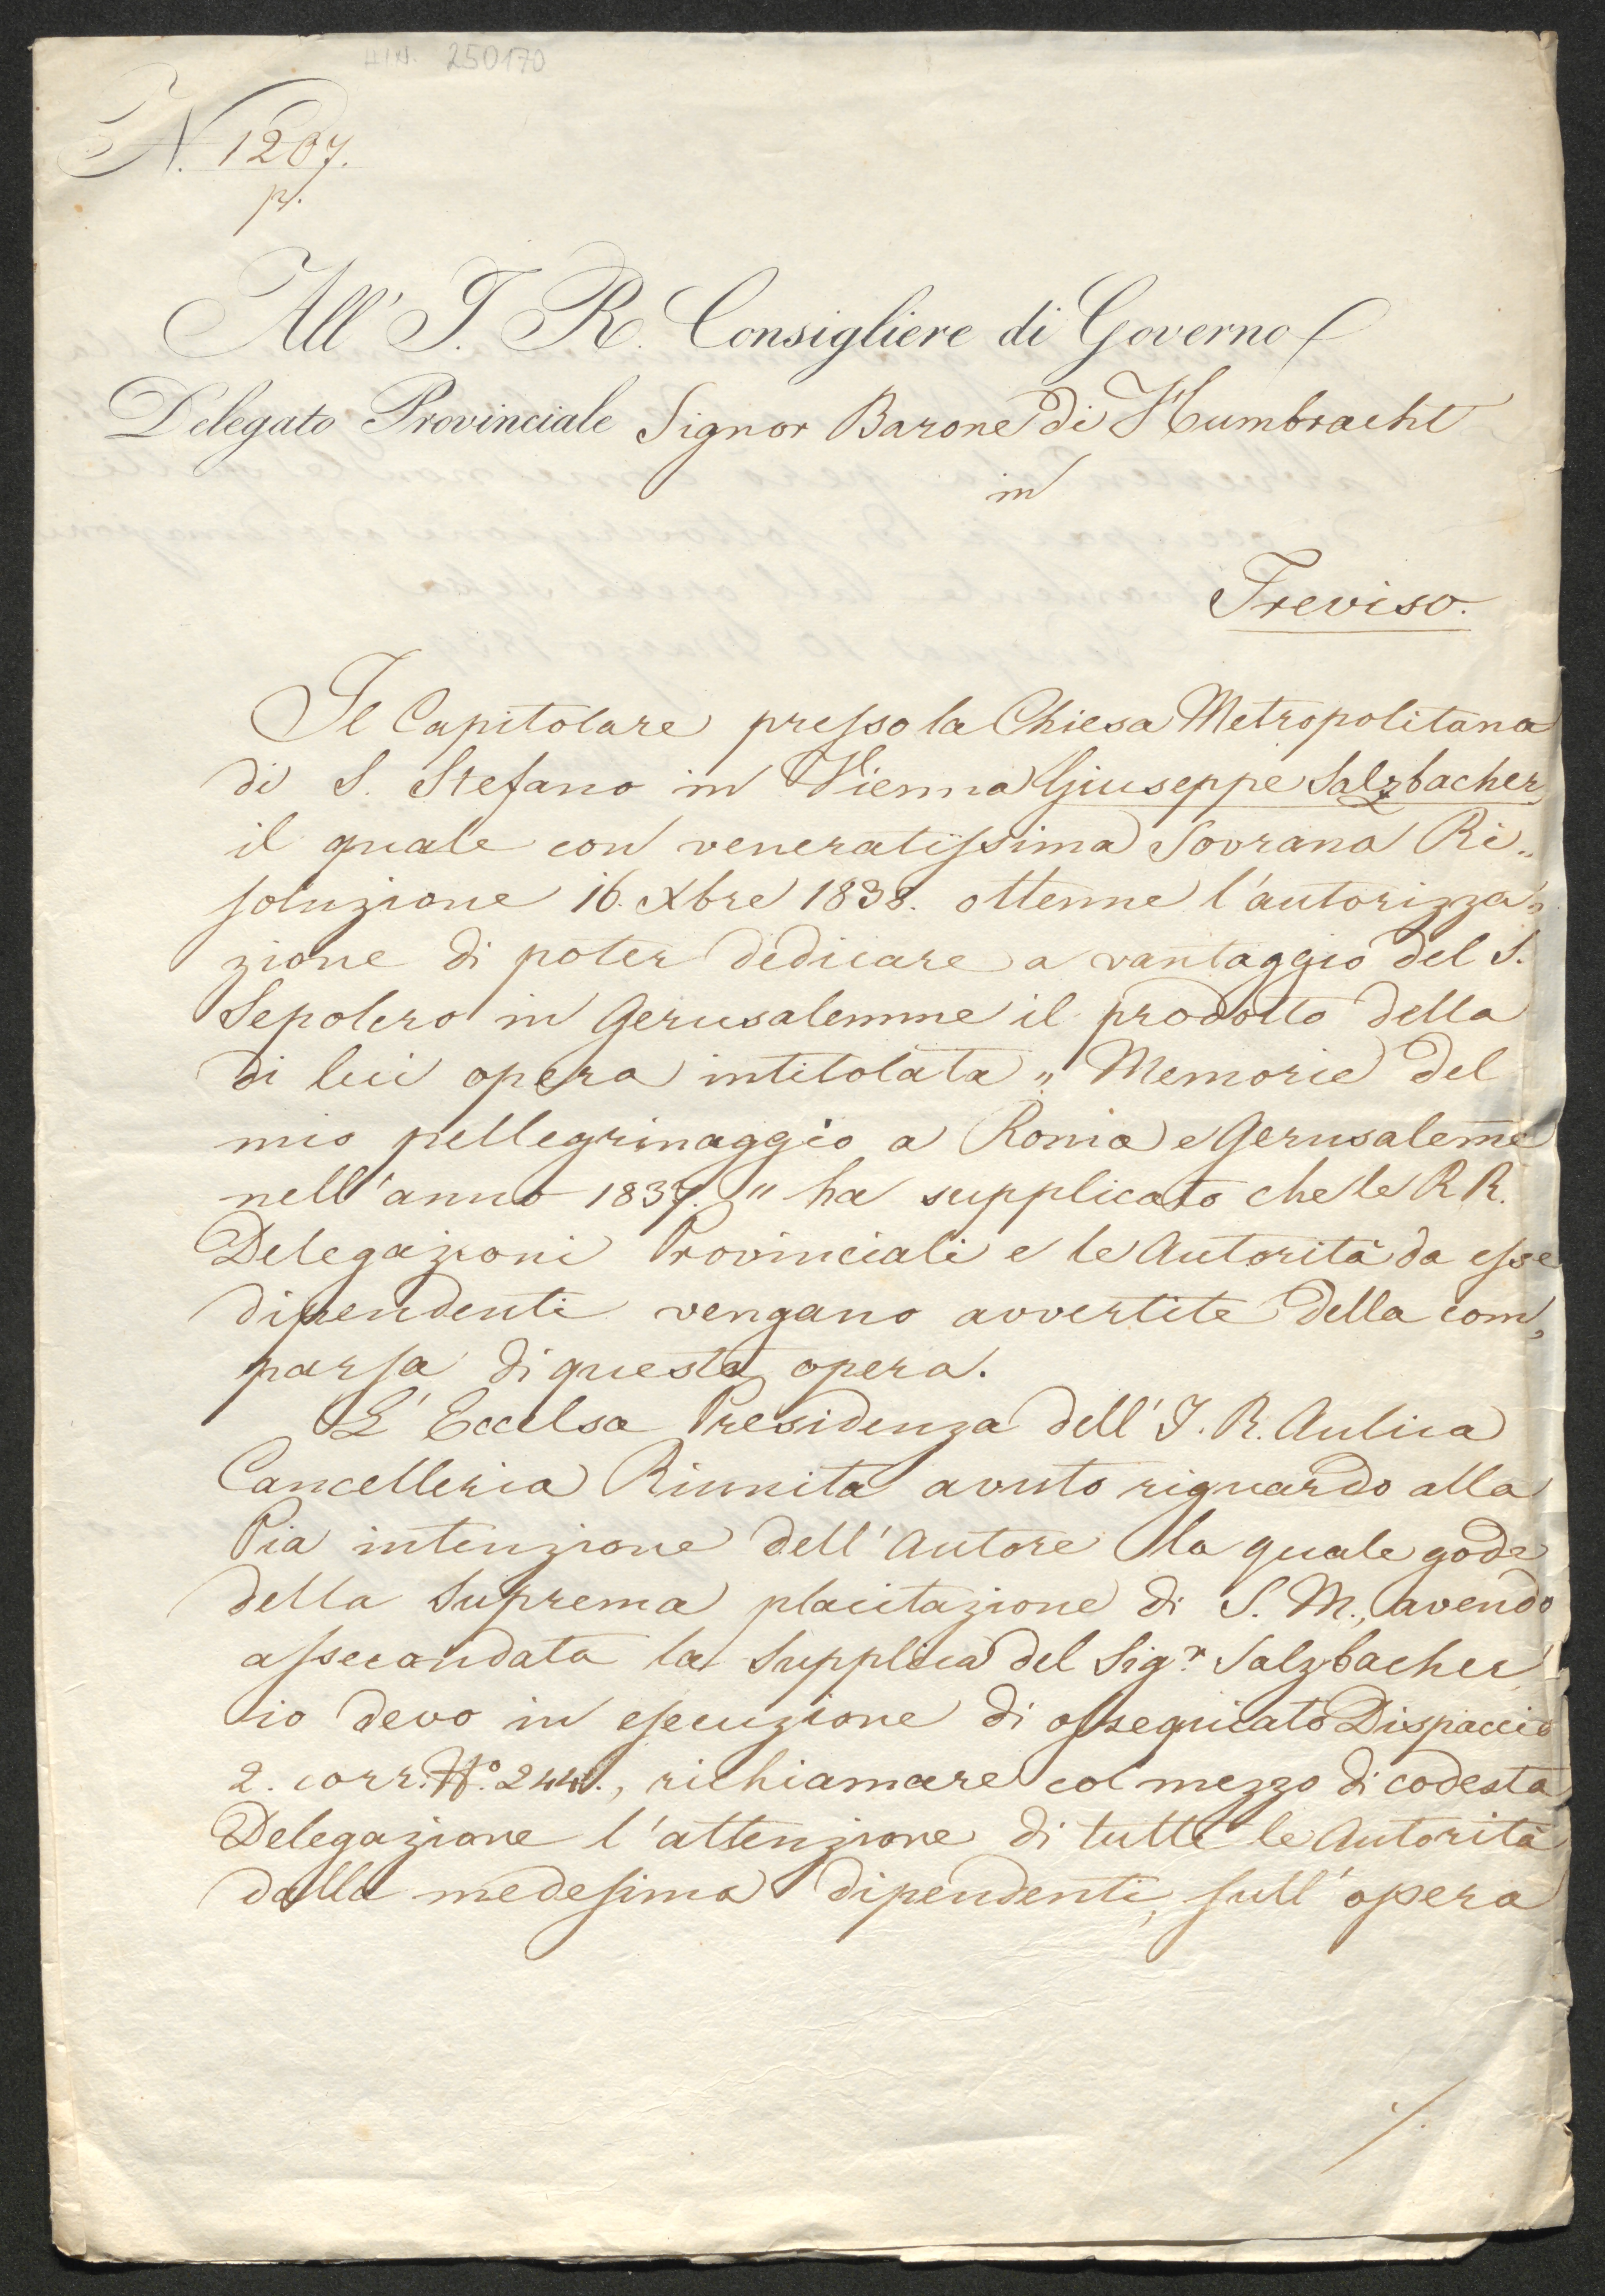 AIN. 250170
N. 1207.
p.
All' I. R. Consigliere di Governo
Delegato Provinciale Signor Barone di Humbracht
in
Treviso.
Il Capitolare presso la Chiesa Metropolitana
di S. Stefano in Vienna Giuseppe Salzbacher
il quale con veneratissima Sovrana Ri„
soluzione 16. Xbre 1838. ottenne l'autorizza„
zione di poter dedicare a vantaggio del S.
Sepolcro in Gerusalemme il prodotto della
di lui opera intitolata „ Memorie del
mio pellegrinaggio a Roma e Gerusaleme
nell'anno 1837. " ha supplicato che le R R.
Delegazioni Provinciali e le Autorità da esse
dipendenti vengano avvertite della com„
parsa di questa opera.
L'Eccelsa Presidenza dell' I. R. Aulica
Cancelleria Riunita avuto riguardo alla
Pia intenzione dell'Autore la quale gode
della Suprema placitazione di S. M., avendo
assecondata la Supplica del Sigr. Salzbacher
io devo in esecuzione di ossequiato Dispaccio
2. corr. No. 244., richiamare col mezzo di codesta
Delegazione l'attenzione di tutte le Autorità
dalla medesima dipendenti, sull'opera
./.